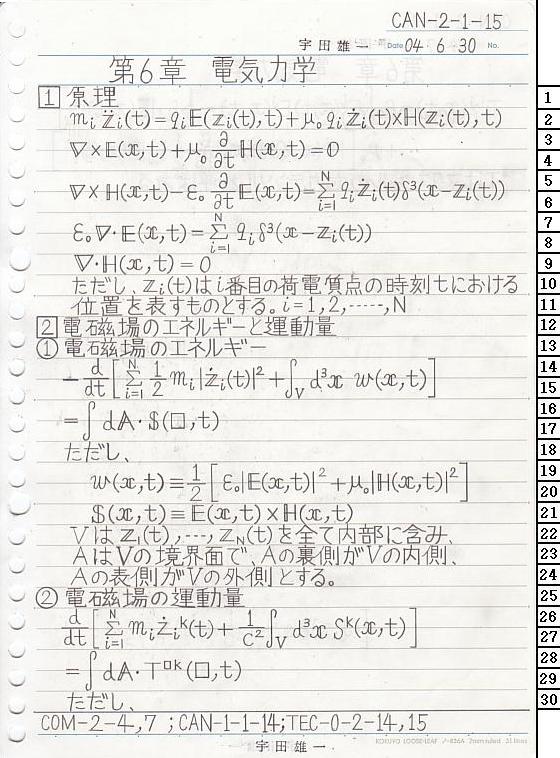 CAN-2-1-15
宇田雄一 Date 04 6 30 No.
第6章 電気力学
1 原理
mᵢ z̈ᵢ(t) = qᵢ𝔼(zᵢ(t), t) + μ₀ qᵢ żᵢ(t)×ℍ(zᵢ(t), t)
∇×𝔼(x, t) + μ₀ ∂/∂t ℍ(x, t) = 0
∇×ℍ(x, t) − ε₀ ∂/∂t 𝔼(x, t) = Σ_{i=1}^{N} qᵢ żᵢ(t) δ³(x − zᵢ(t))
ε₀∇·𝔼(x, t) = Σ_{i=1}^{N} qᵢ δ³(x − zᵢ(t))
∇·ℍ(x, t) = 0
ただし、zᵢ(t)は i 番目の荷電質点の時刻 t における
位置を表すものとする。i = 1, 2, -----, N
2 電磁場のエネルギーと運動量
① 電磁場のエネルギー
− d/dt [ Σ_{i=1}^{N} 1/2 mᵢ |żᵢ(t)|² + ∫_V d³x w(x, t) ]
= ∫ d𝔸·𝕊(□, t)
ただし、
w(x, t) ≡ 1/2 [ ε₀|𝔼(x, t)|² + μ₀|ℍ(x, t)|² ]
𝕊(x, t) ≡ 𝔼(x, t) × ℍ(x, t)
Vは z₁(t), ---, z_N(t) を全て内部に含み、
AはVの境界面で、Aの裏側がVの内側、
Aの表側がVの外側とする。
② 電磁場の運動量
d/dt [ Σ_{i=1}^{N} mᵢ żᵢᵏ(t) + 1/c² ∫_V d³x Sᵏ(x, t) ]
= ∫ d𝔸·T^{□k}(□, t)
ただし、
COM-2-4,7 ; CAN-1-1-14; TEC-0-2-14,15
宇田雄一
KOKUYO LOOSE-LEAF ノ-836A 7mm ruled 31 lines
1
2
3
4
5
6
7
8
9
10
11
12
13
14
15
16
17
18
19
20
21
22
23
24
25
26
27
28
29
30